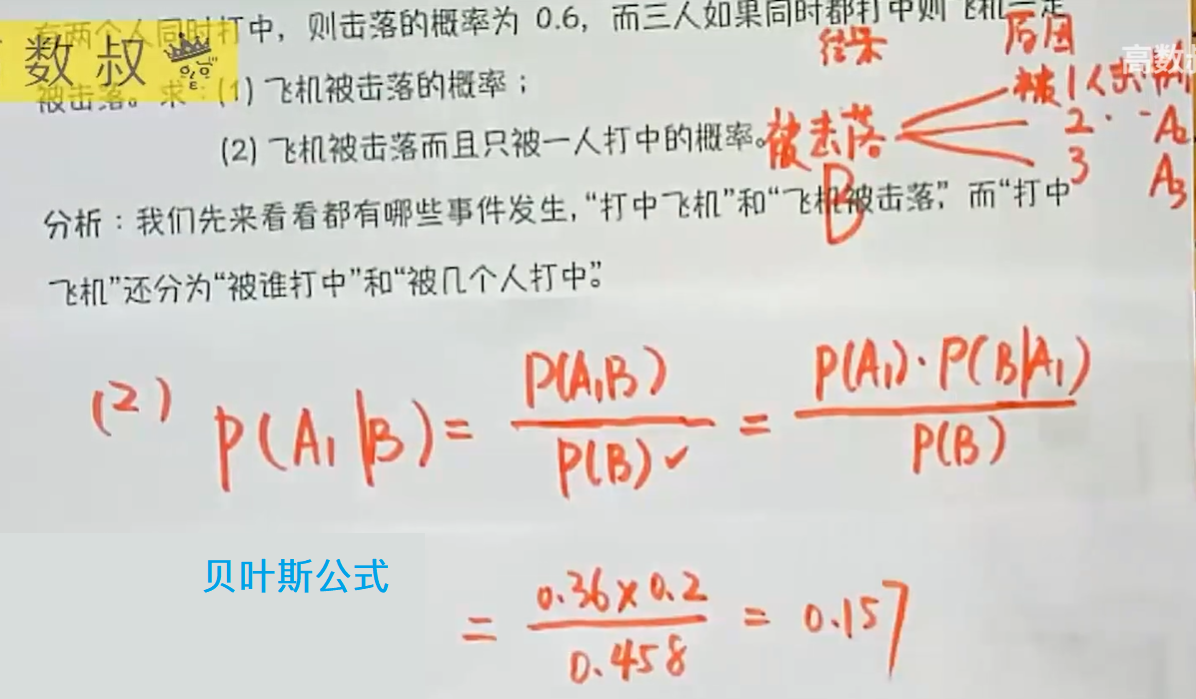 有两个人同时打中，则击落的概率为 0.6，而三人如果同时都打中则飞机一定
数叔
结果
原因
高数
被击落。求：(1) 飞机被击落的概率；
被1人击中
(2) 飞机被击落而且只被一人打中的概率。
被击落
2 · - A2
B
3 A3
分析：我们先来看看都有哪些事件发生，“打中飞机”和“飞机被击落”，而“打中
飞机”还分为“被谁打中”和“被几个人打中”。
(2) P(A₁|B) = P(A₁B) / P(B) ✓ = P(A₁)·P(B|A₁) / P(B)
贝叶斯公式
= 0.36×0.2 / 0.458 = 0.157